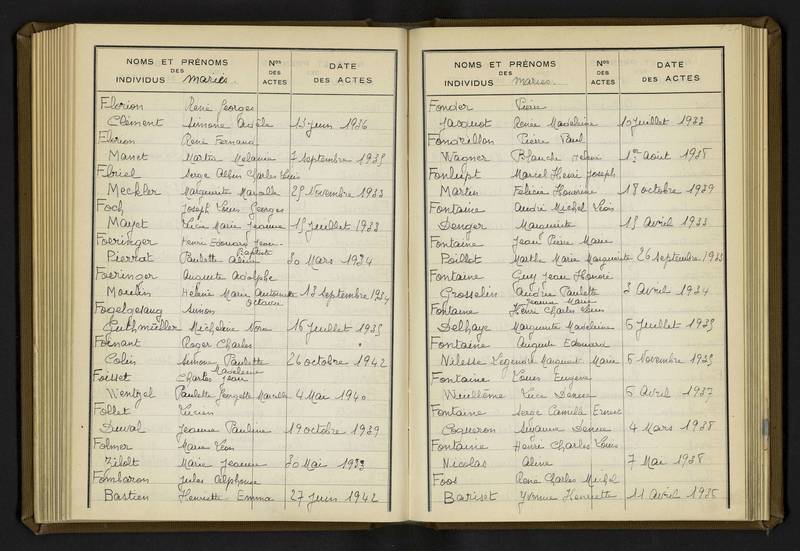 NOMS ET PRÉNOMS
DES
INDIVIDUS mariés
Nos
DES
ACTES
DATE
DES ACTES
Florion René Georges
Clément Simone Adèle 13 Juin 1936
Florion René Fernand
Manet Marthe Mélanie 7 Septembre 1935
Charles Louis
Meckler Marguerite 25 Novembre 1933
Foch Joseph Louis Georges
Mayet Marie Jeanne 15 Juillet 1933
Foeringer Henri Edouard Jean
Baptiste
Pierrat Paulette 30 Mars 1934
Foeringer Auguste Adolphe
Moulin Helène Marie Antoinette 13 Septembre 1934
Octavie
Fogelgesang Simon
Guthmuller Micheline 16 Juillet 1935
Foinant Roger Charles
Colin Simone Paulette 26 octobre 1942
Madeleine
Foisset Charles Jean
Wentzel Paulette Georgette Marcelle 4 Mai 1940
Follet Lucien
Duval Jeanne Pauline 19 octobre 1939
Folmer Marie Léon
Marie Jeanne 30 Mai 1933
Fombaron Jules Alphonse
Bastien Henriette Emma 27 Juin 1942
NOMS ET PRÉNOMS
DES
INDIVIDUS mariés
Nos
DES
ACTES
DATE
DES ACTES
Fonder Pierre
Jacquot Renée Madeleine 10 Juillet 1933
Fondrillon Pierre Paul
Wagner Blanche Hélène 1er Août 1938
Fonlupt Marcel Henri Joseph
Martin Félicie Honorine 18 octobre 1939
Fontaine André Michel Léon
Denger Marguerite 15 Avril 1933
Fontaine Jean Pierre Marie
Poillot Marthe Marie Marguerite 26 Septembre 1933
Fontaine Guy Jean Honoré
Grosselin Andrée Paulette 3 Avril 1934
Jeanne Marie
Fontaine Henri Charles Louis
Delhaye Marguerite Madeleine 6 Juillet 1935
Fontaine Auguste Edouard
Marguerite Marie 6 Novembre 1935
Fontaine Louis Eugène
Wuillême Luce Denise 5 Avril 1937
Fontaine Serge Camille Ernest
Coqueron Suzanne Denise 4 Mars 1938
Fontaine Henri Charles Louis
Nicolas Aline 7 Mai 1938
Foos René Charles Michel
Bariset Yvonne Henriette 11 Avril 1935